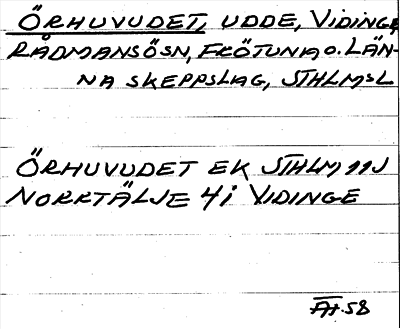 ÖRHUVUDET, UDDE, VIDINGE,
RÅDMANSÖSN, FRÖTUNA O. LÄN-
NA SKEPPSLAG, STHLMSL
ÖRHUVUDET EK STHLM 11J
NORRTÄLJE 4i VIDINGE
ÅH.58